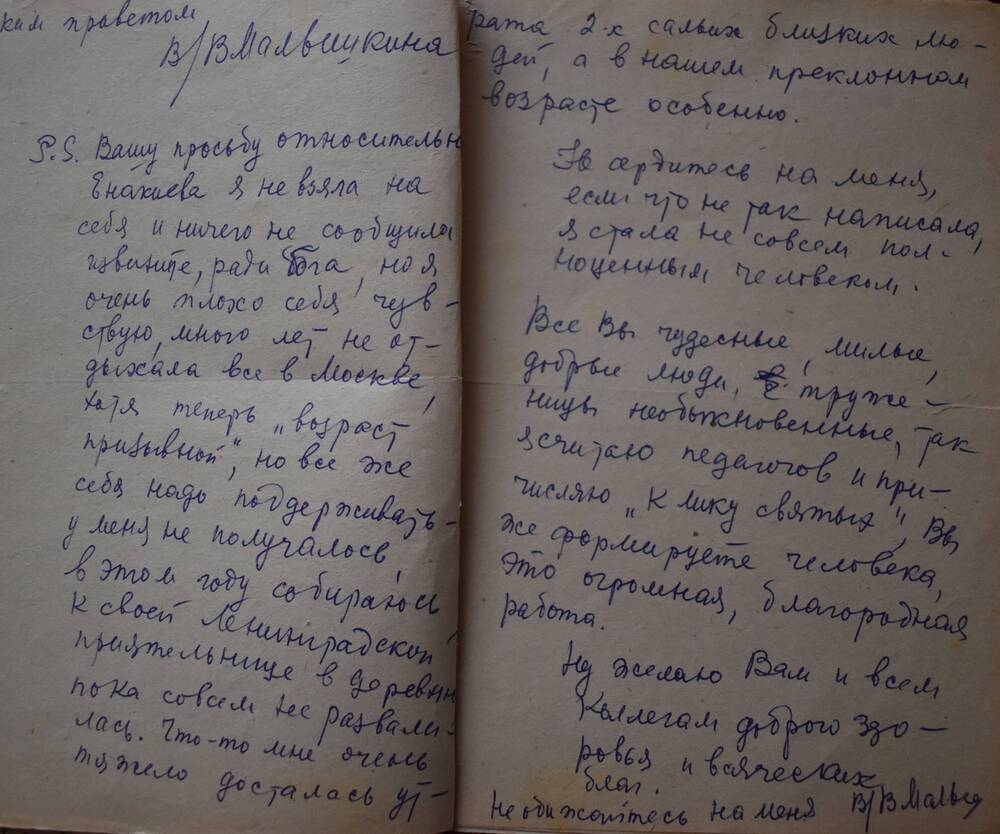 ким приветом
В/ВМалышкина
P.S. Вашу просьбу относительн
Енакиева я не взяла на
себя и ничего не сообщила
извините, ради бога, но я
очень плохо себя чув-
ствую, много лет не от-
дыхала все в Москве,
хотя теперь „возраст
призывной", но все же
себя надо поддерживать-
у меня не получалось,
в этом году собираюсь
к своей Ленинградской
приятельнице в деревню
пока совсем не развали-
лась. Что-то мне очень
тяжело досталась ут-
рата 2-х самых близких лю-
дей, а в нашем преклонном
возрасте особенно.
Не сердитесь на меня,
если что не так написала,
я стала не совсем пол-
ноценным человеком.
Все Вы чудесные, милые,
добрые люди, труже-
ницы необыкновенные, так
я считаю педагогов и при-
числяю „к лику святых", Вы
же формируете человека,
это огромная, благородная
работа.
Ну желаю Вам и всем
Коллегам доброго здо-
ровья и всяческих
благ.
Не обижайтесь на меня В/ВМалыш